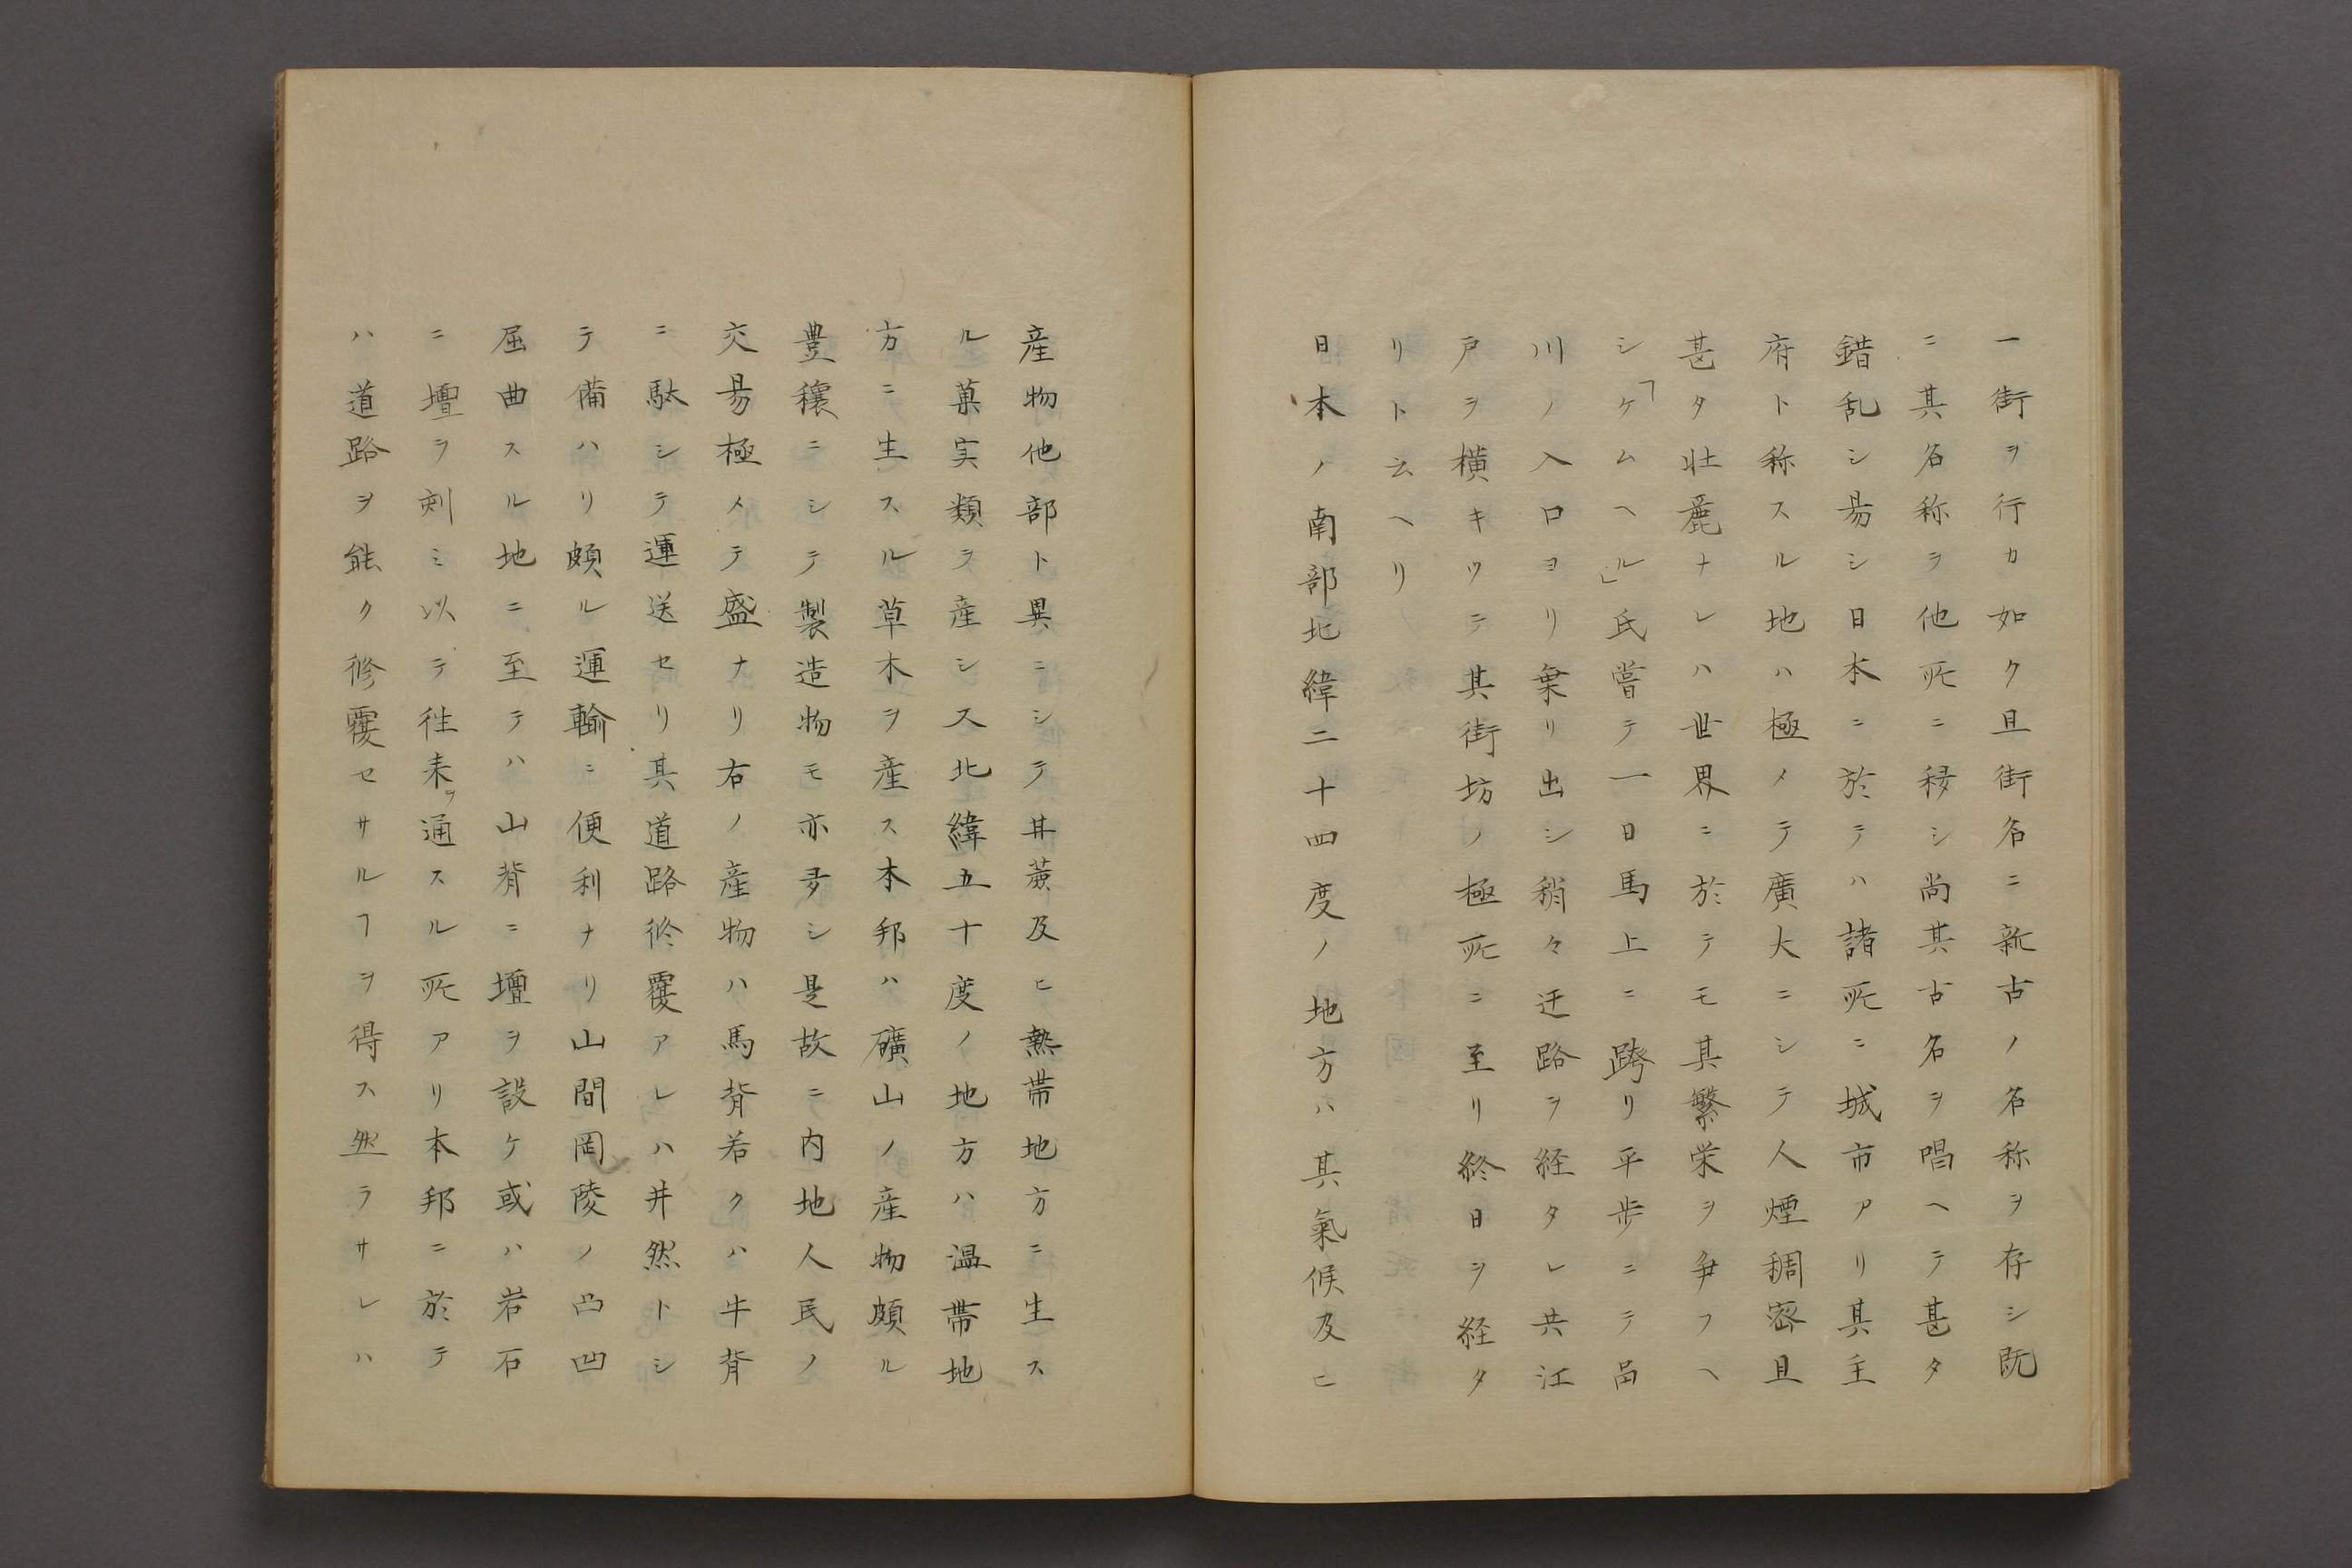 一街ヲ行カ如ク且街名ニ新古ノ名称ヲ存シ既
ニ其名称ヲ他所ニ移シ尚其古名ヲ唱ヘテ甚タ
錯乱シ易シ日本ニ於テハ諸所ニ城市アリ其主
府ト称スル地ハ極メテ廣大ニシテ人煙稠密且
甚タ壮麗ナレハ世界ニ於テモ其繁栄ヲ争フヘ
シ「ケムヘル」氏嘗テ一日馬上ニ跨リ平歩ニテ品
川ノ入口ヨリ乗リ出シ稍々迂路ヲ経タレ共江
戸ヲ横キツテ其街坊ノ極所ニ至リ終日ヲ経タ
リト云ヘリ
日本ノ南部北緯二十四度ノ地方ハ其氣候及ヒ
産物他部ト異ニシテ甘蔗及ヒ熱帯地方ニ生ス
ル菓実類ヲ産シ又北緯五十度ノ地方ハ温帯地
方ニ生スル草木ヲ産ス本邦ハ礦山ノ産物頗ル
豊穰ニシテ製造物モ亦多シ是故ニ内地人民ノ
交易極メテ盛ナリ右ノ産物ハ馬背若クハ牛背
ニ駄シテ運送セリ其道路修覆アレハ井然トシ
テ備ハリ頗ル運輸ニ便利ナリ山間岡陵ノ凸凹
屈曲スル地ニ至テハ山背ニ壇ヲ設ケ或ハ岩石
ニ壇ヲ刻ミ以テ徃来ヲ通スル所アリ本邦ニ於テ
ハ道路ヲ能ク修覆セサルヿヲ得ス然ラサレハ